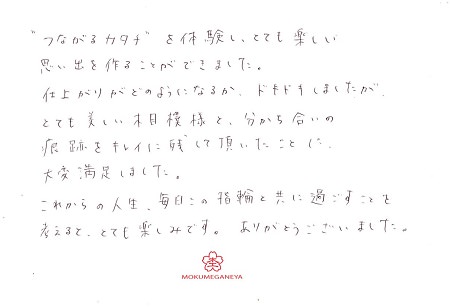 "つながるカタチ"を体験し、とても楽しい
思い出を作ることができました。
仕上がりがどのようになるか、ドキドキしましたが、
とても美しい木目模様と、分かち合いの
痕跡をキレイに残して頂いたことに、
大変満足しました。
これからの人生、毎日この指輪と共に過ごすことを
考えると、とても楽しみです。ありがとうございました。
MOKUMEGANEYA